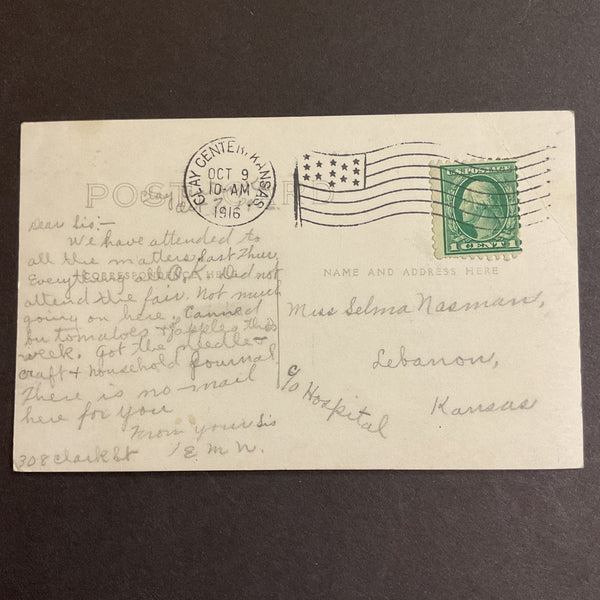 POST CARD
CLAY CENTER, KANSAS
OCT 9
10-AM
1916
U.S. POSTAGE
1 CENT 1
Clay
Dear Sis:-
We have attended to
all the matters. last Thur.
Everything all O.K. Did not
CORRESPONDENCE HERE
attend the fair. Not much
going on here, Canned
tomatoes + apples this
week. Got the Needle-
craft + Household Journal
There is no mail
here for you
From your Sis
E. M. N.
308 Clark St
NAME AND ADDRESS HERE
Miss Selma Nasman,
Lebanon,
Kansas
c/o Hospital